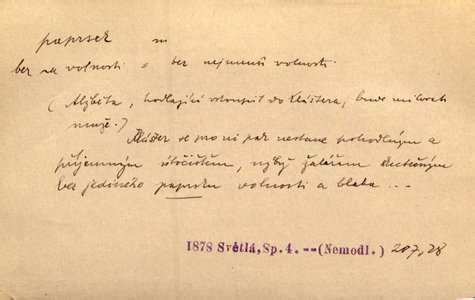 paprsek m
bez p. volnosti = bez nejmenší volnosti.
(Alžběta, hodlající vstoupit do kláštera, bude milovati
muže.)
Klášter se pro ni pak nestane pohodlným a
příjemným útočištěm, nýbrž žalářem skutečným
bez jediného paprsku volnosti a blaha ...
1878 Světlá, Sp. 4. -- (Nemodl.) 207, 28